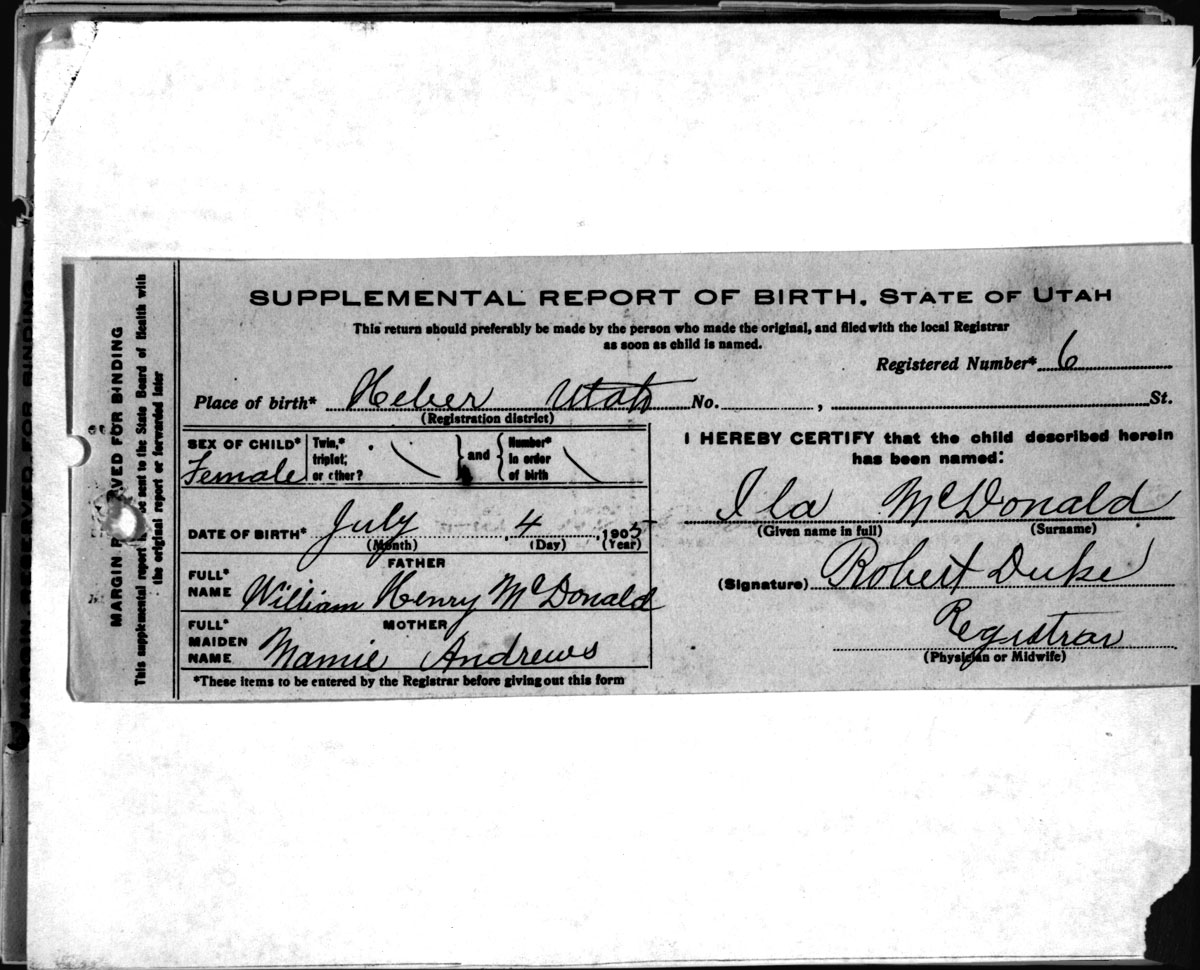 SUPPLEMENTAL REPORT OF BIRTH, STATE OF UTAH
This return should preferably be made by the person who made the original, and filed with the local Registrar
as soon as child is named.
Registered Number* 6
Place of birth* Heber Utah No. , St.
(Registration district)
SEX OF CHILD* Female
Twin,*
triplet,
or other?
and
Number*
in order
of birth
DATE OF BIRTH* July 4 1905
(Month) (Day) (Year)
FATHER
FULL*
NAME William Henry McDonald
MOTHER
FULL*
MAIDEN
NAME Mamie Andrews
*These items to be entered by the Registrar before giving out this form
I HEREBY CERTIFY that the child described herein
has been named:
Ila McDonald
(Given name in full) (Surname)
(Signature) Robert Duke
Registrar
(Physician or Midwife)
MARGIN RESERVED FOR BINDING
This supplemental report be sent to the State Board of Health with
the original report or forwarded later
MARGIN RESERVED FOR BINDING